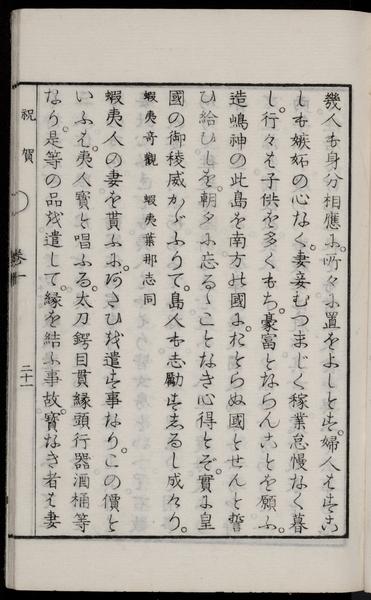 幾人も身分相應に所々に置をよしとす。婦人もすこ
しも嫉妬の心なく。妻妾むつましく稼業怠慢なく暮
し。行々は子供を多くもち。豪富とならんことを願ふ。
造嶋神の此島を南方の國に。おとらぬ國とせんと誓
ひ給ひしを。朝夕に忘るゝことなき心得とぞ。實に皇
國の御稜威かゞふりて。島人も志勵すゑるし成けり。
蝦夷奇觀　蝦夷葉那志同
蝦夷人の妻を貰ふに。あさひ越遣す事なり。この價と
いふは。夷人寳と唱ふる。太刀鍔目貫縁頭行器酒桶等
なり。是等の品越遣して。縁を結ふ事故。寳なき者は妻
祝賀
卷一
二十一